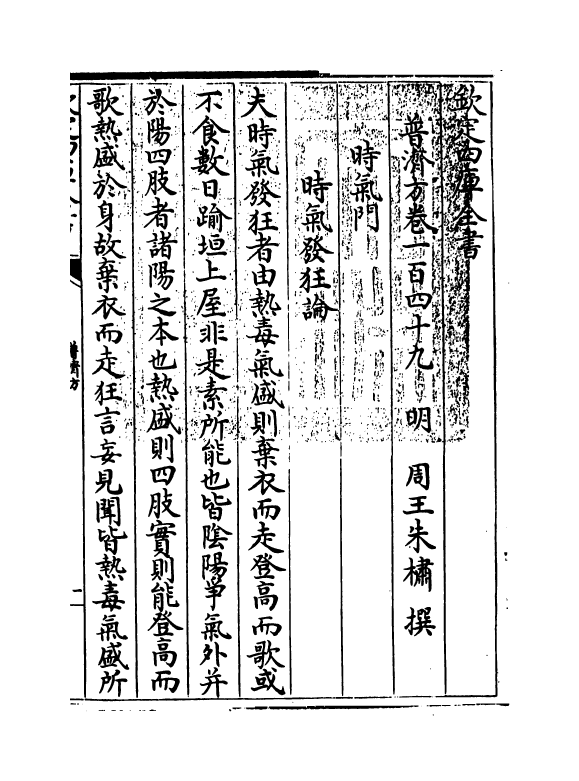 欽定四庫全書
普濟方卷一百四十九　明　周王朱橚　撰
時氣門
時氣發狂論
夫時氣發狂者由熱毒氣盛則棄衣而走登高而歌或
不食數日踰垣上屋非是素所能也皆陰陽爭氣外并
於陽四肢者諸陽之本也熱盛則四肢實則能登高而
歌熱盛於身故棄衣而走狂言妄見聞皆熱毒氣盛所
普濟方